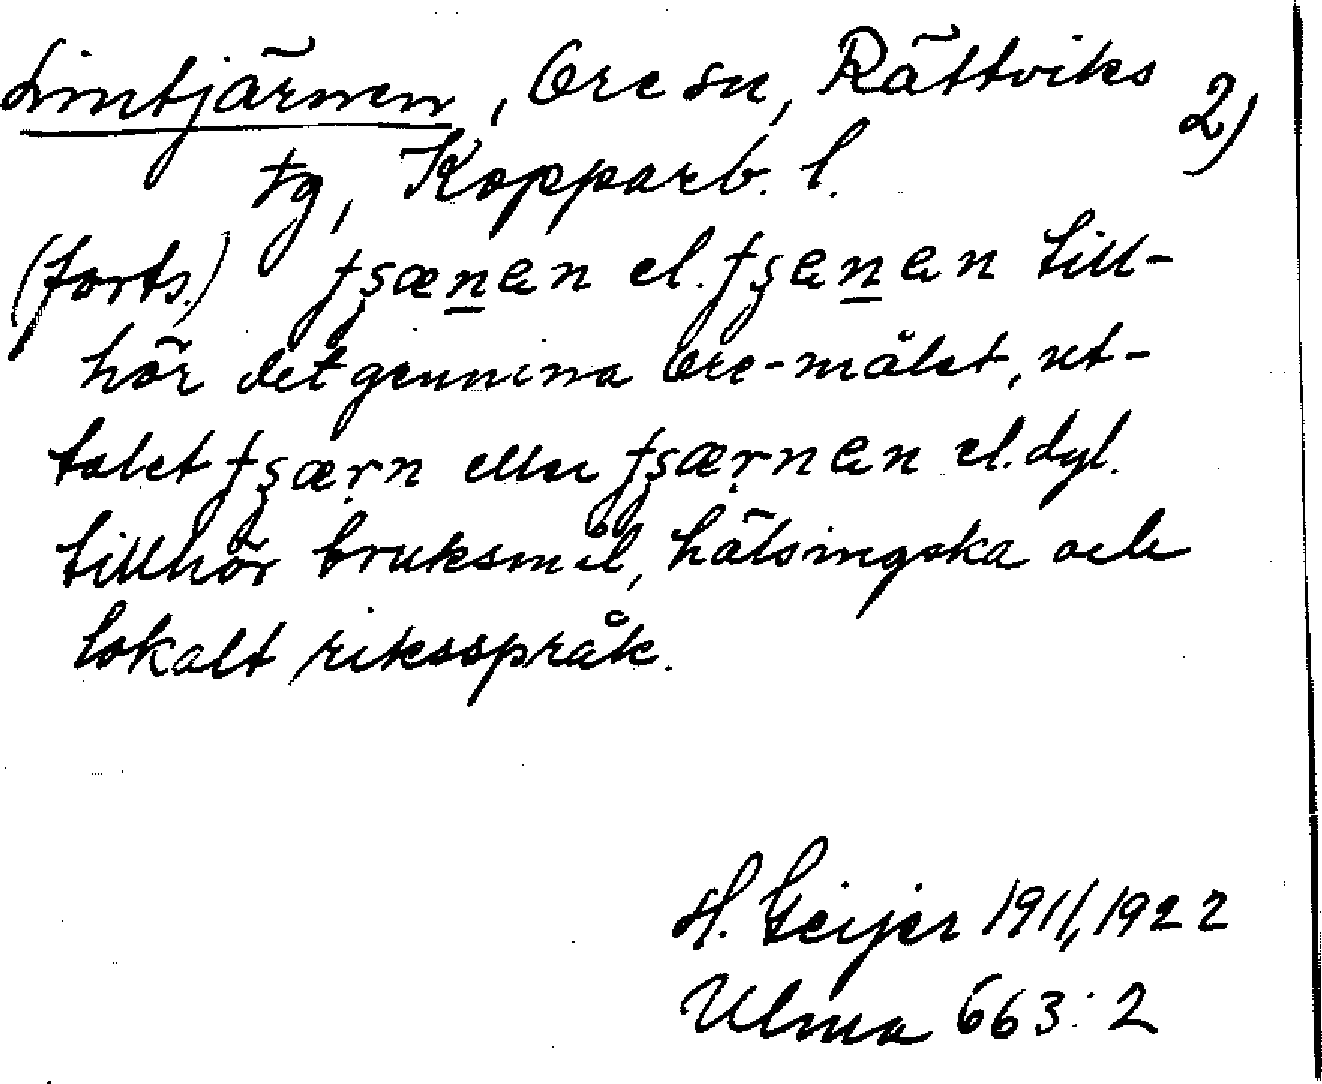 Limtjärnen, Ore sn, Rättviks 2)
tg, Kopparb. l.
(forts.) tʂænen el. tʂenen till-
hör det genuina Ore-målet, ut-
talet tʂærn eller tʂærnen el. dyl.
tillhör bruksmål, hälsingska och
lokalt riksspråk.
H. Geijer 1911, 1922
Ulma 663:2